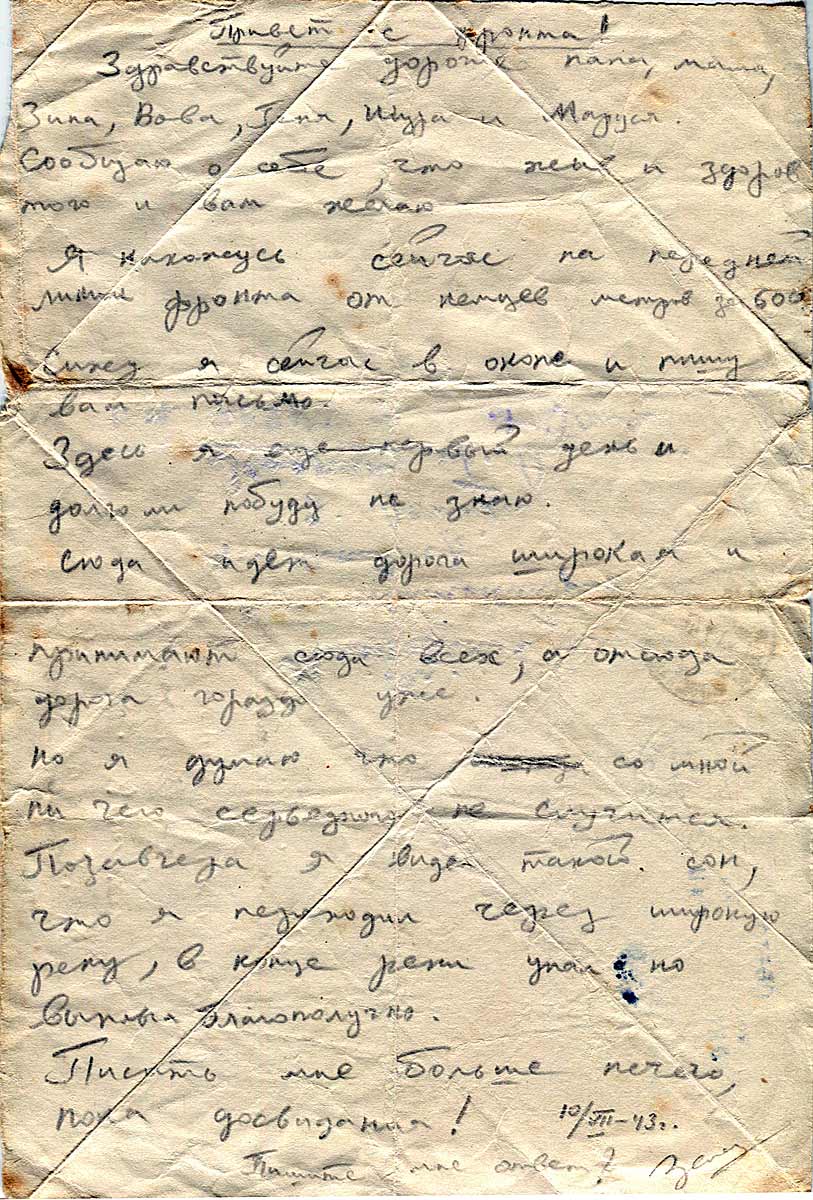 Привет с фронта!
Здравствуйте дорогие папа, мама,
Зина, Вова, Геня, Шура и Маруся.
Сообщаю о себе, что жив и здоров
того и вам желаю
Я нахожусь сейчас на передней
линии фронта от немцев метров за 600
Сижу я сейчас в окопе и пишу
вам письмо.
Здесь я еще первый день и
долго ли побуду не знаю.
Сюда идет дорога широкая и
принимают сюда всех, а отсюда
дорога гораздо уже.
но я думаю что со мной
ни чего серьезного не случится.
Позавчера я видел такой сон,
что я переходил через широкую
реку, в конце реки упал но
выплыл благополучно.
Писать мне больше нечего,
пока досвидания! 10/VII-43г.
Пишите мне ответ!